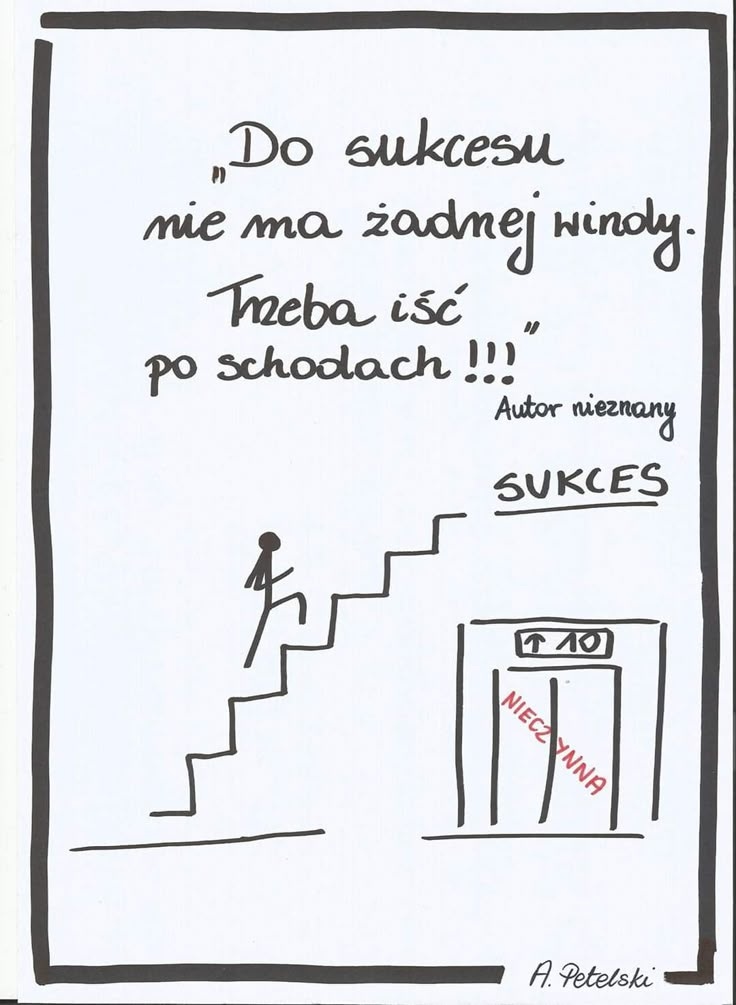 „Do sukcesu
nie ma żadnej windy.
Trzeba iść
po schodach!!!”
Autor nieznany
SUKCES
↑ 10
NIECZYNNA
A. Petelski